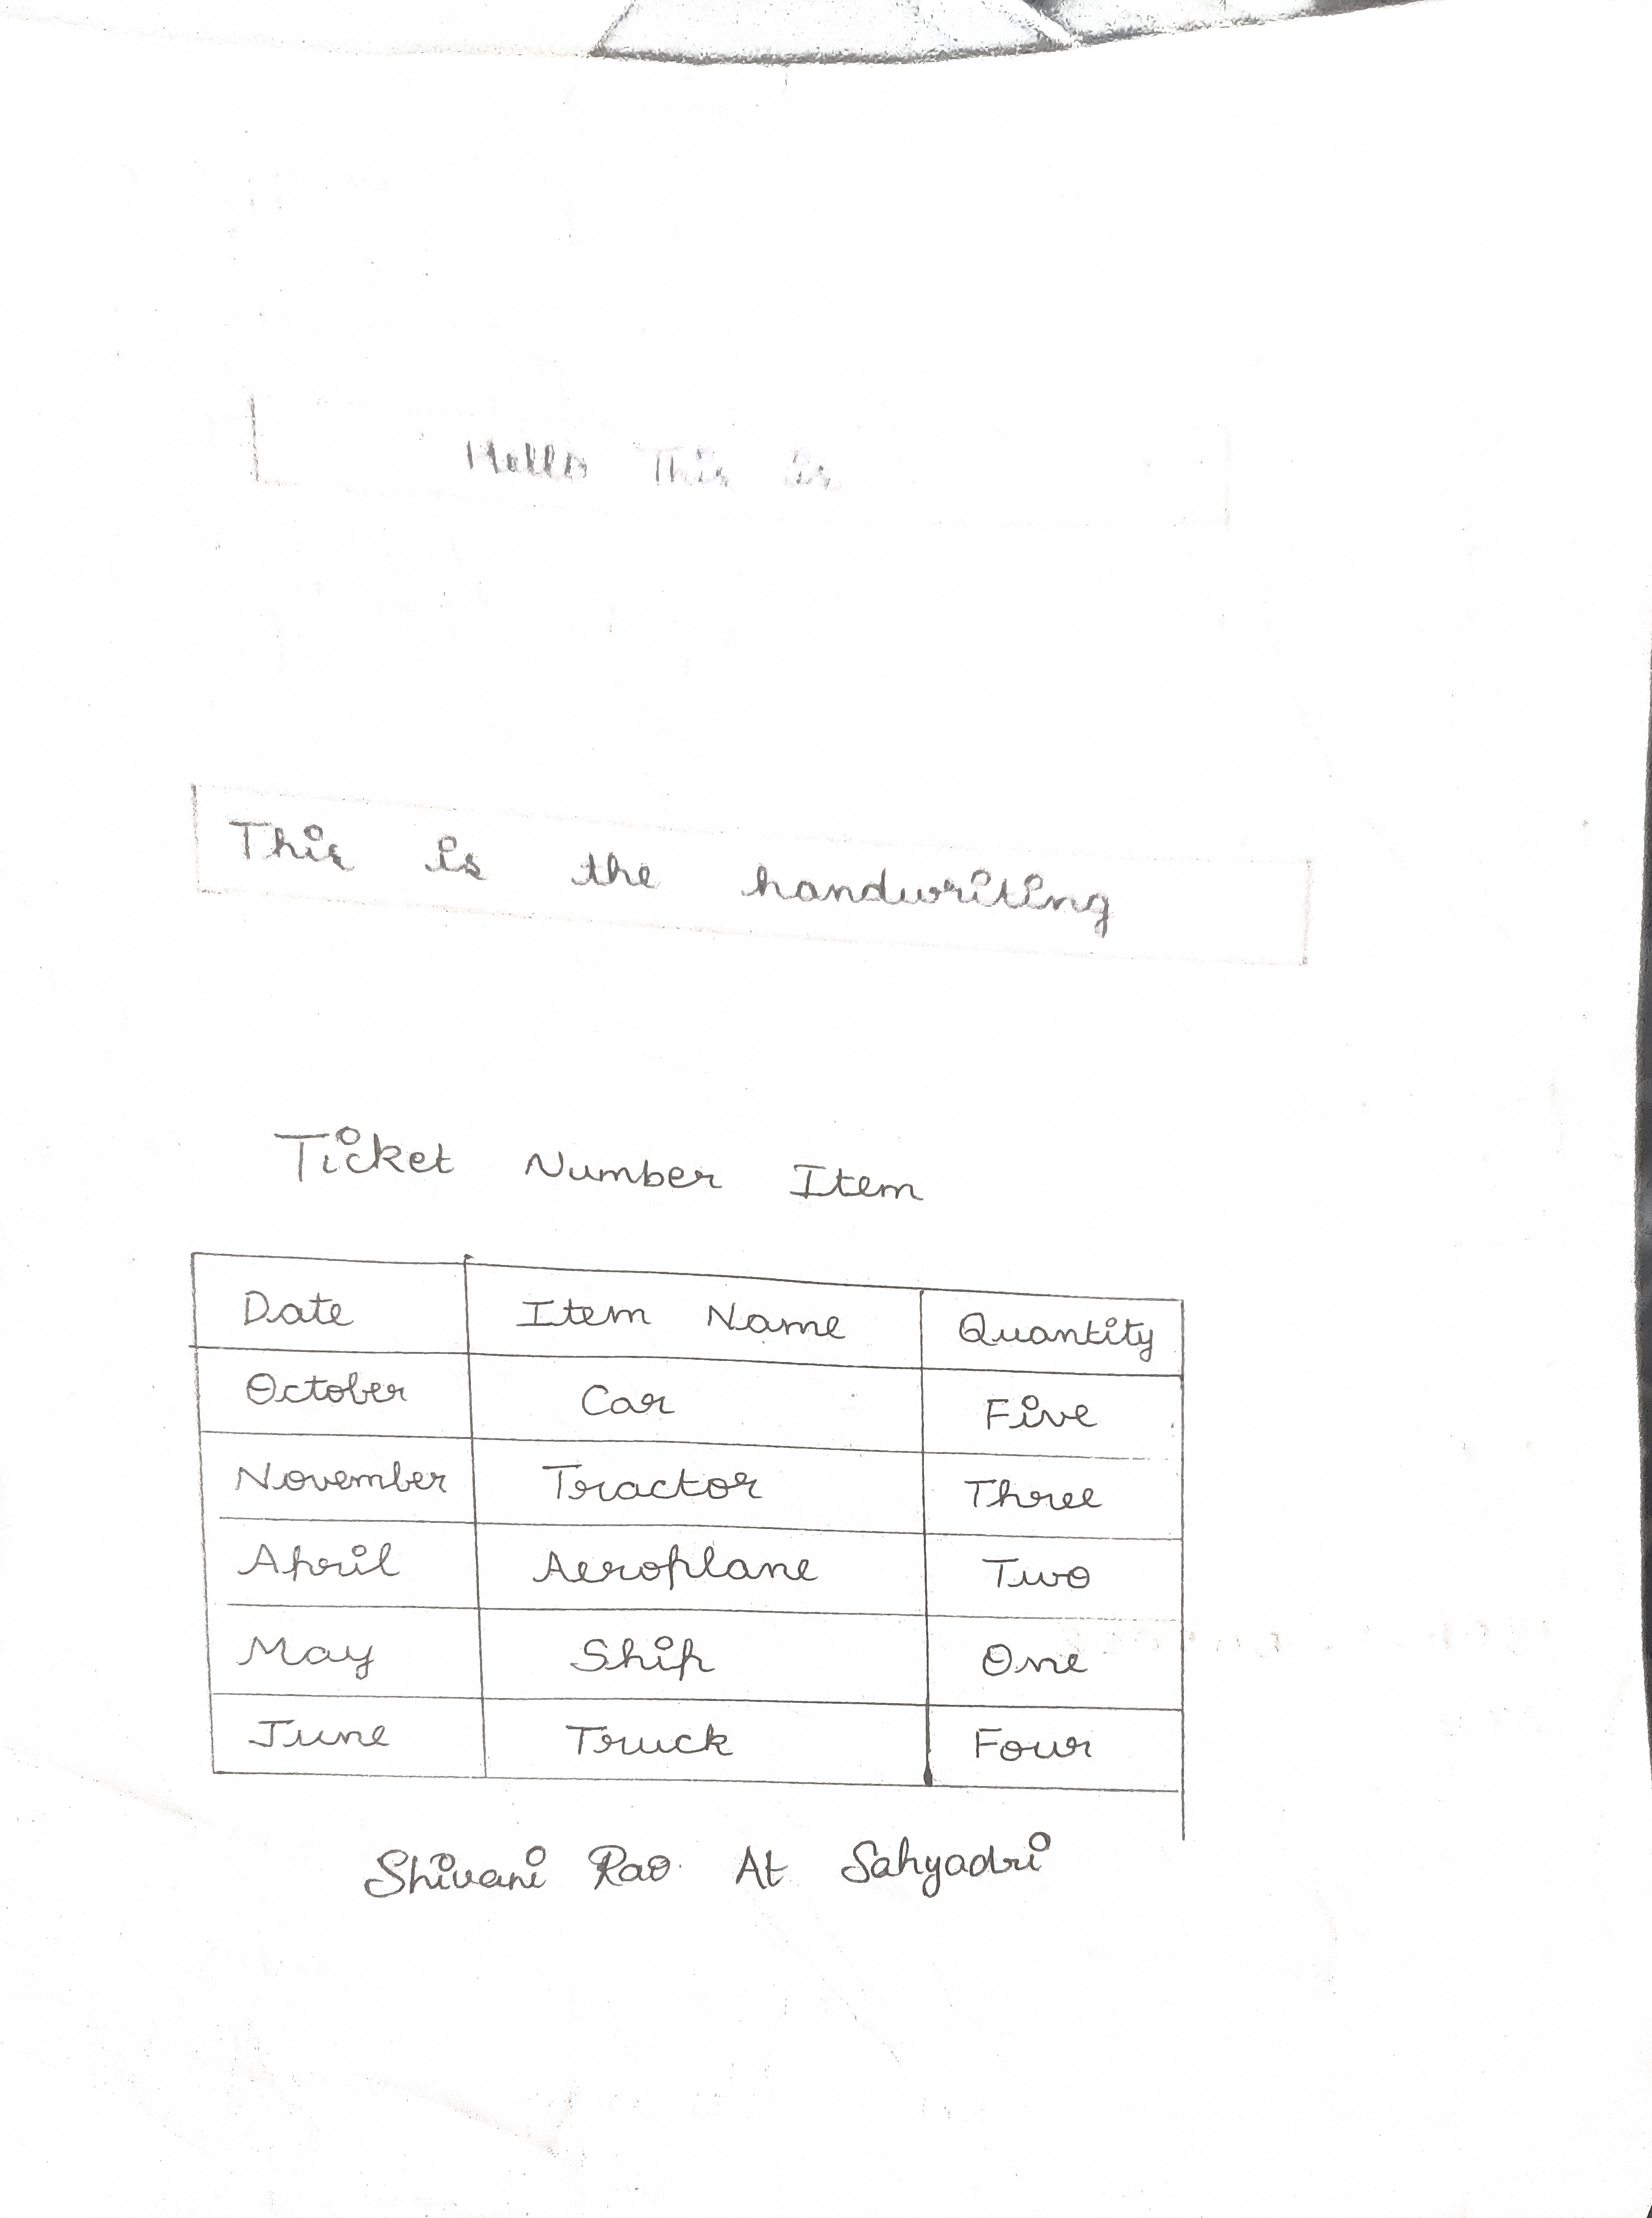 Hello This is
This is the handwriting
Ticket Number Item
Date Item Name Quantity
October Car Five
November Tractor Three
April Aeroplane Two
May Ship One
June Truck Four
Shivani Rao At Sahyadri